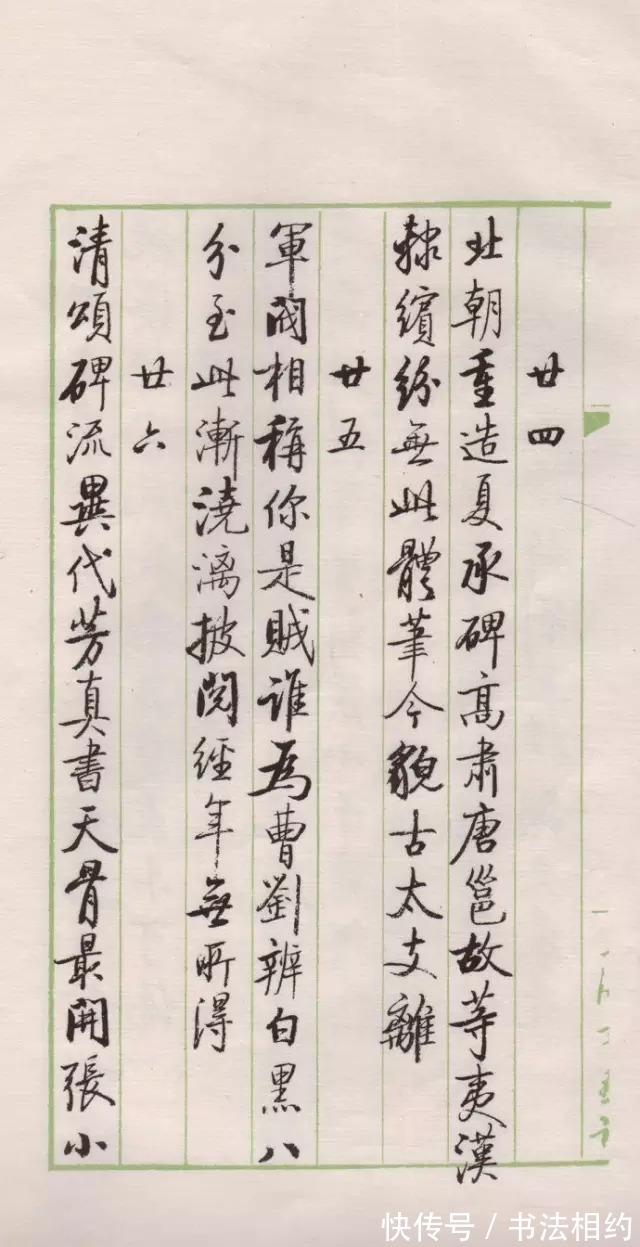 廿四
北朝重造夏承碑高肅唐邕故等夷漢
隸繽紛無此體筆今貌古太支離
廿五
軍閥相稱你是賊誰為曹劉辨白黑八
分至此漸澆漓披閱經年無所得
廿六
清頌碑流異代芳真書天骨最開張小
快传号 / 书法相约